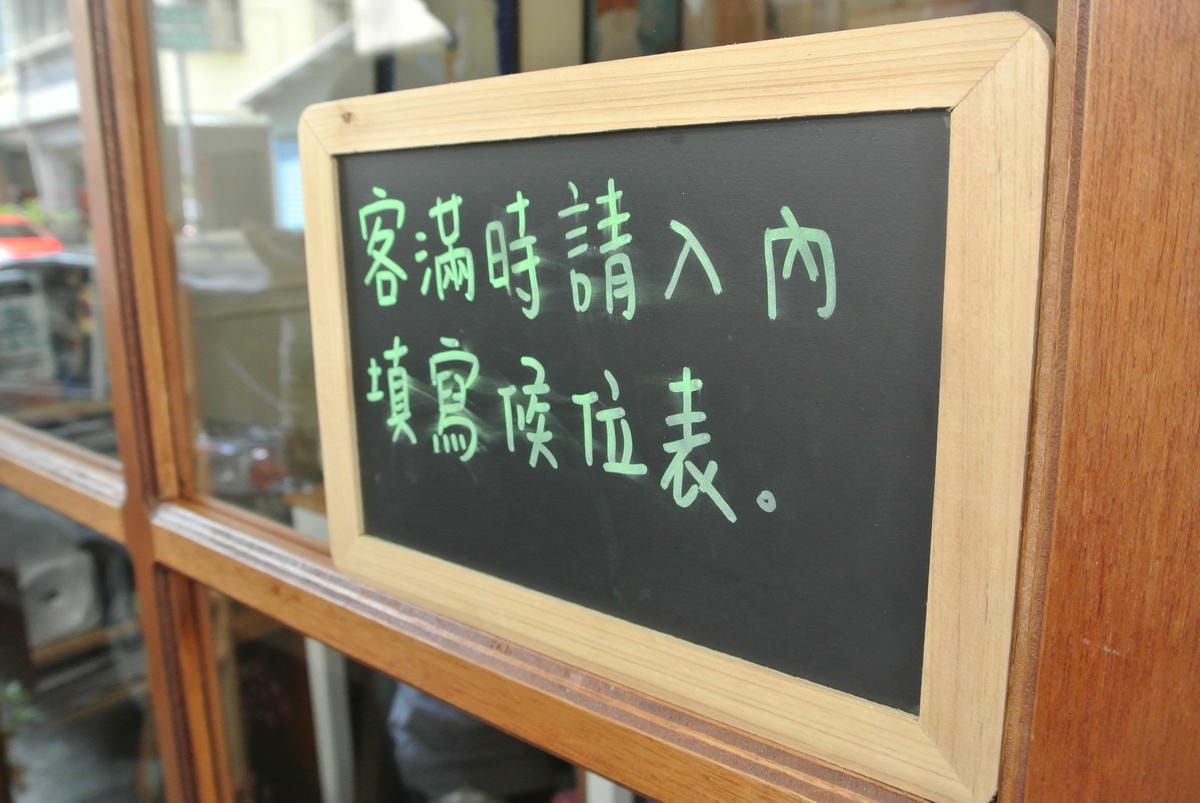 客滿時請入內
填寫候位表。